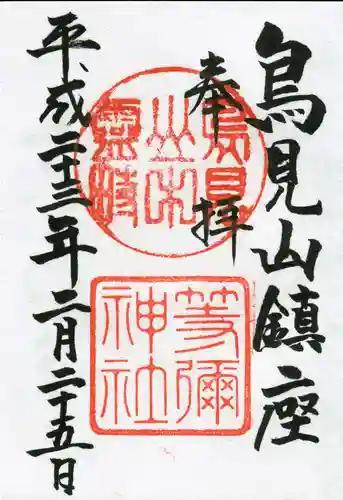 鳥見山鎮座
奉拝
平成二十三年二月二十五日
鳥見
山中
霊畤
等彌
神社